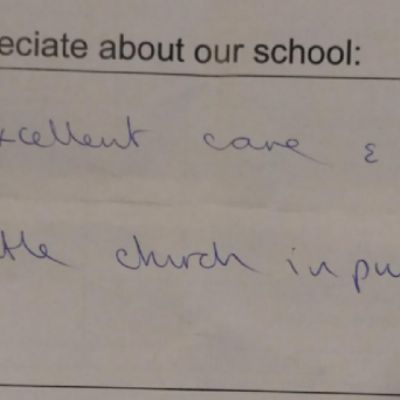 eciate about our school:
xcellent care &
the church inpu